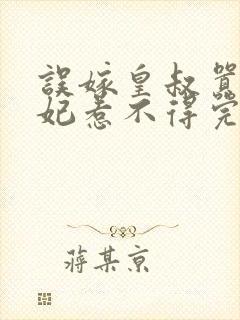 誤嫁皇叔
妃惹不得完
蔣某京